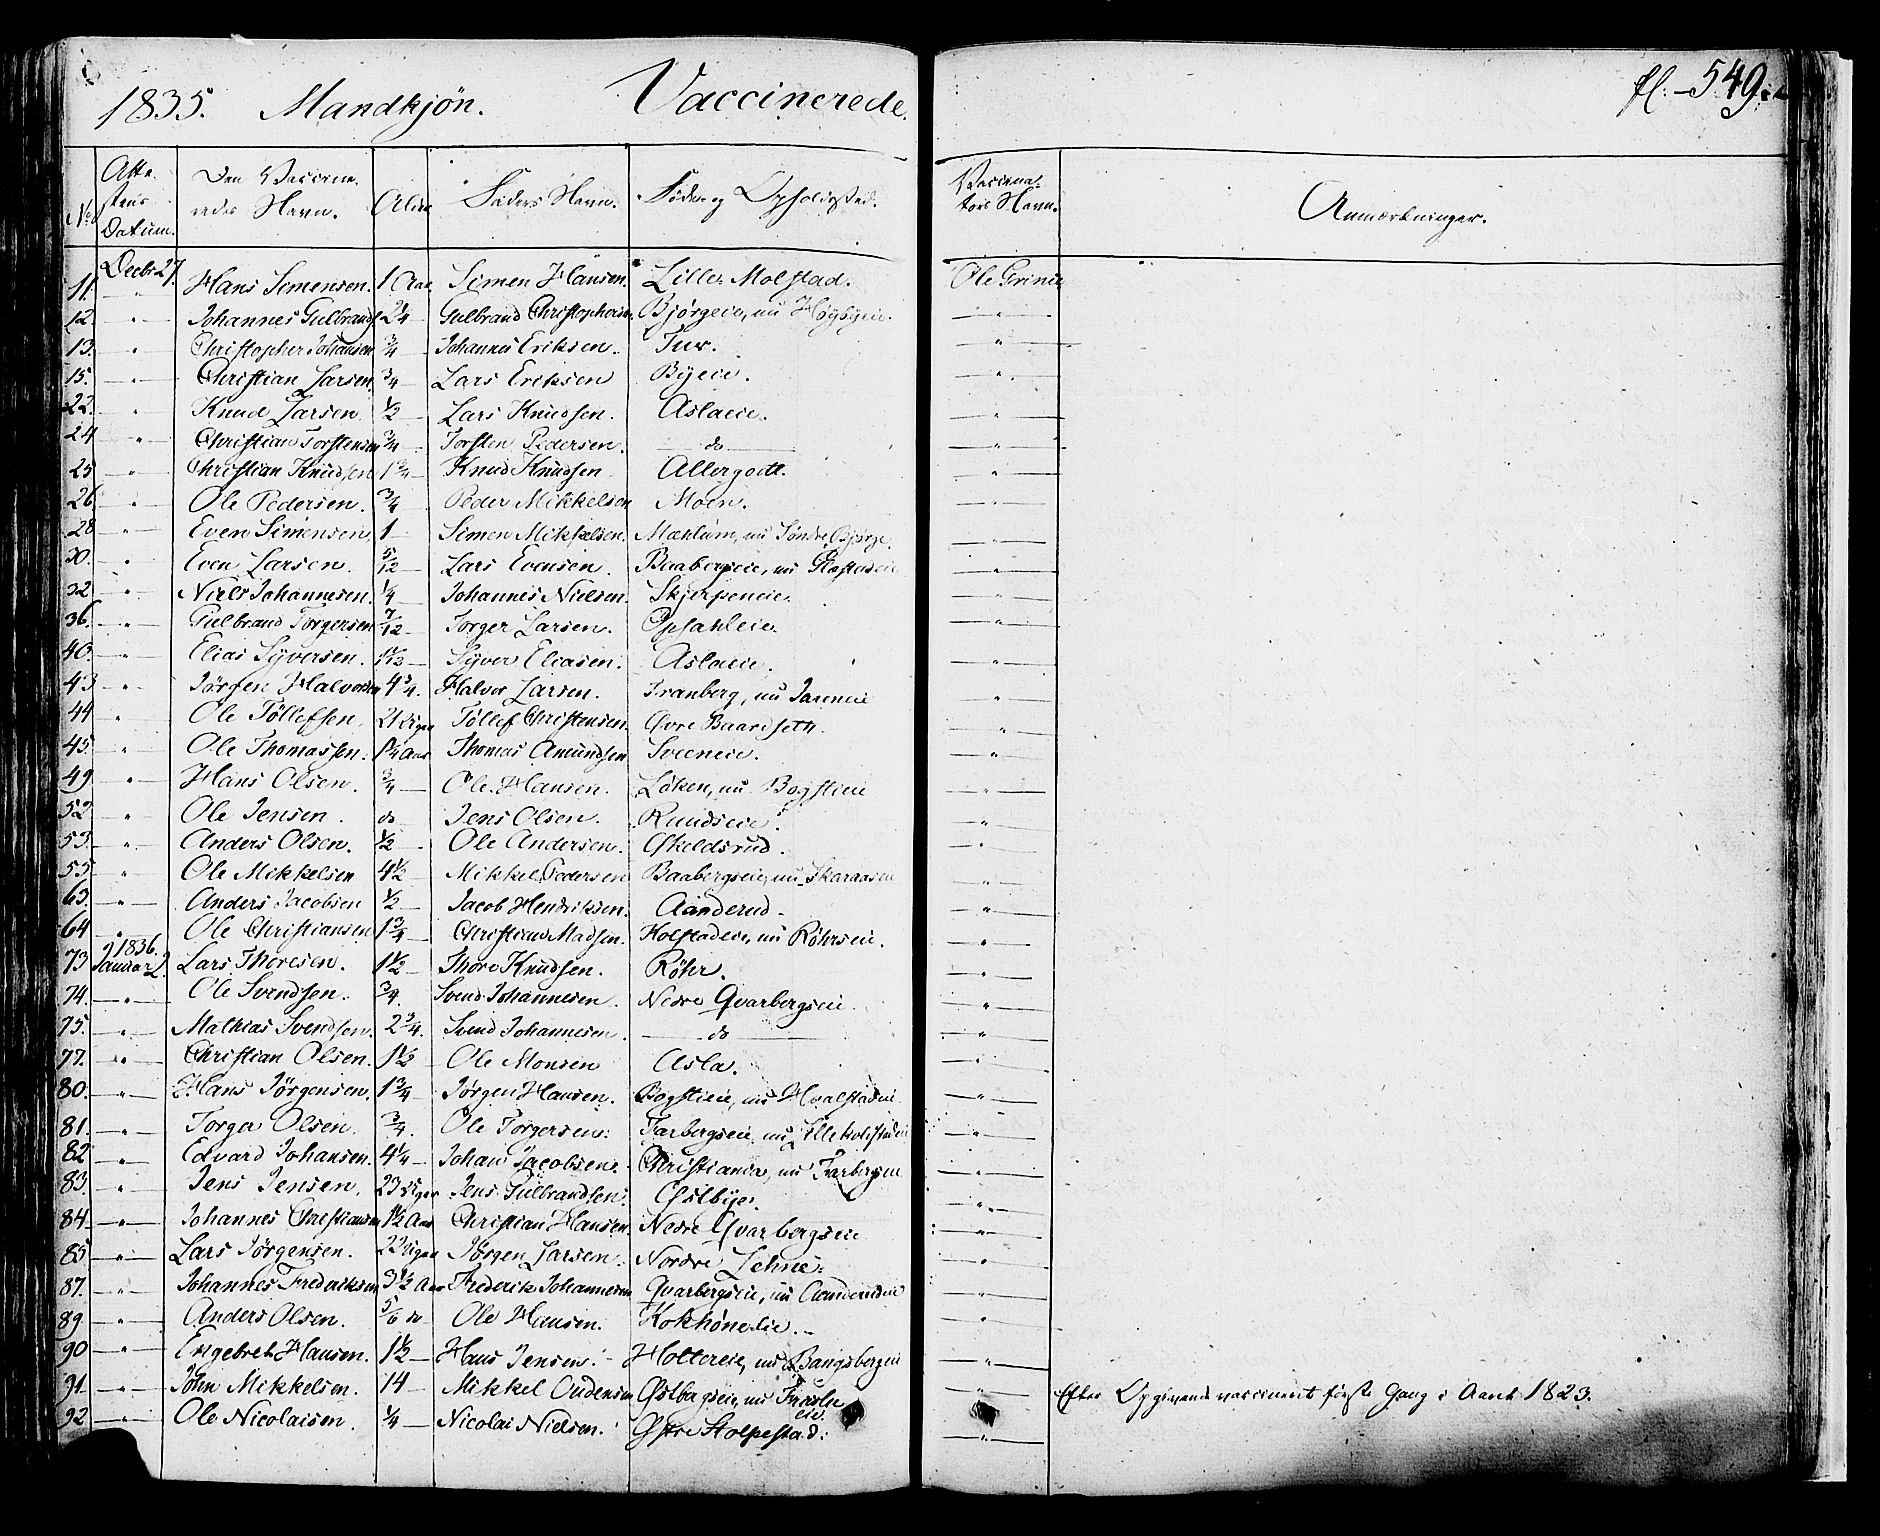 1835. Mandkjøn. Vaccinerede. fl. 549.
No Atte-stens Datum. Den Vaccine-redes Navn. Alder Faders Navn. Føde og Opholdssted. Vaccina-tors Navn. Anmærkninger.
11. Decbr 27. Hans Simensen. 1 Aar. Simen Hansen. Lille Molstad. Ole Grinie
12. " Johannes Gulbrands. 2 1/4 Gulbrand Christophersen. Bjørgeie, nu Høybyeie. "
13. " Christopher Johansen 3/4 Johannes Eriksen. Fur. "
15. " Christian Larsen. 3/4 Lars Eriksen Byeie. "
22. " Knud Larsen. 1/2 Lars Knudsen. Aslaeie. "
24 " Christian Torstensen 3/4 Torsten Pedersen. do "
25 " Christian Knudsen 1 3/4 Knud Knudsen Allergodt. "
26 " Ole Pedersen. 3/4 Peder Mikkelsen Moen. "
28 " Even Simensen. 1 Simen Mikkelsen. Mæhlum, nu Søndre Bjørge. "
30. " Even Larsen. 5/12 Lars Evensen. Baabergseie, nu "
32 " Niels Johannesen. 1/4 Johannes Nielsen. Skjerpeneie. "
36. " Gulbrand Torgersen 7/12 Torger Larsen. Opsahleie. "
40. " Elias Syversen. 1 1/2 Syver Eliasen. Aslaeie. "
43 " Jørgen Halvorsen 4 3/4. Halvor Larsen. Franberg, nu Jareneie "
44 " Ole Tøllefsen. 21 Uger Tøllef Christensen. Øvre Baardseth. "
45. " Ole Thomassen. 1 1/4 Aar Thomas Amundsen Sveeneie. "
49 " Hans Olsen. 3/4 Ole Hansen. Løken, nu Bogstieie "
52 " Ole Jensen. do Jens Olsen. Ruudseie. "
53. " Anders Olsen. 1/2 Ole Andersen. Eskeldsrud. "
55 " Ole Mikkelsen 4 1/2 Mikkel Pedersen Baabergseie, nu Skaraasen "
63. " Anders Jacobsen 1/2 Jacob Hendriksen. Aanderud. "
64 " Ole Christiansen 1 3/4 Christian Madsen. Kolstadeie, nu Røhrseie. "
73 1836. Januar 2. Lars Thoresen. 1 1/2 Thore Knudsen. Røhr. "
74. " Ole Svendsen. 3/4. Svend Johannesen. Nedre Qvarbergseie "
75. " Mathias Svendsen. 2 3/4. Svend Johannesen. do "
77. " Christian Olsen. 1 1/2 Ole Monsen Asla. "
80. " Hans Jørgensen. 1 3/4 Jørgen Hansen. Bogstieie, nu Hvalstadeie "
81. " Torger Olsen. 3/4. Ole Torgersen. Farbergseie, nu "
82 " Edvard Johansen. 4 1/4 Johan Jacobsen. Christiania, nu Farbergseie "
83. " Jens Jensen. 23 Uger Jens Gulbrandsen. Østbye. "
84. " Johannes Christiansen 1 1/2 Aar Christian Hansen. Nedre Qvarbergseie "
85 " Lars Jørgensen. 22 Uger Jørgen Larsen. Nordre Lehne. "
87. " Johannes Fredriksen 3 1/2 Aar Frederik Johannesen Qvarbergseie, nu Aanderudeie "
89 " Anders Olsen. 5/6 do Ole Hansen. Kokhøneeie. "
90 " Engebreth Hansen. 1 1/2 Hans Jensen. Holtereie, nu Bangsbergeie "
91. " John Mikkelsen. 14 Mikkel Oudensen Østbergseie, nu eie. " Efter Opgivende vaccineret første Gang i Aaret 1823.
92 " Ole Nicolaisen. 1/4 Nicolai Nielsen. Østre Stolpestad. "